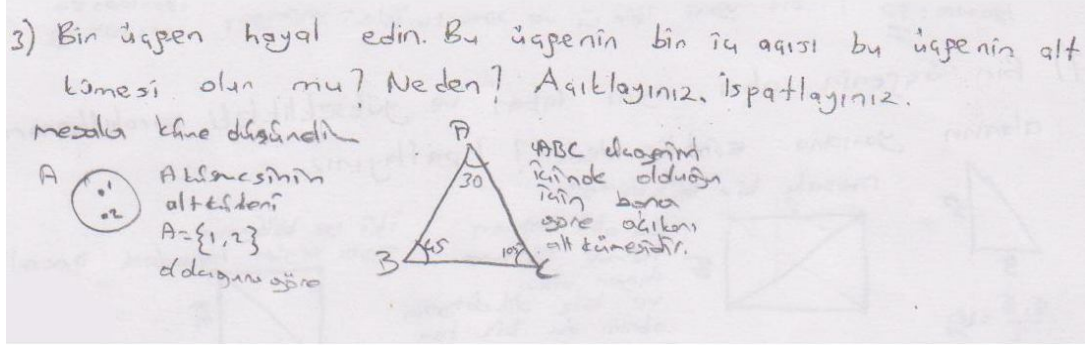 3) Bir üçgen hayal edin. Bu üçgenin bir iç açısı bu üçgenin alt
kümesi olur mu? Neden? Açıklayınız. İspatlayınız.
mesela küme düşündik
A
.1
.2
A kümesinin
alt kümeleri
A={1,2}
olduğuna göre
A
30
B 45
105 C
ABC üçgenin
içinde olduğu
için bana
göre açıları
alt kümesidir.